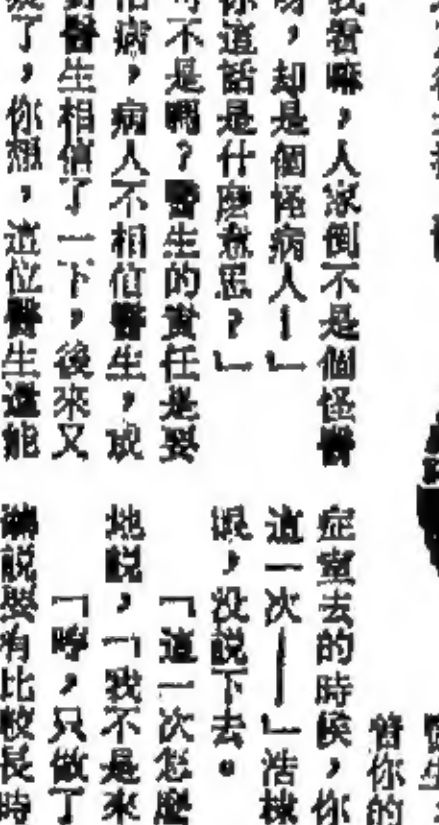 我看嘛，人家倒不是個怪醫
，却是個怪病人！」
你這話是什麼意思？」
不是嗎？醫生的責任是要
病，病人不相信醫生，或
醫生相信了一下，後來又
了，你想，這位醫生還能
管你的
症室去的時候，你
這一次——」浩棣
眼，没說下去。
「這一次怎麼
地説，「我不是來
「哼，只做了
説要有比較長時